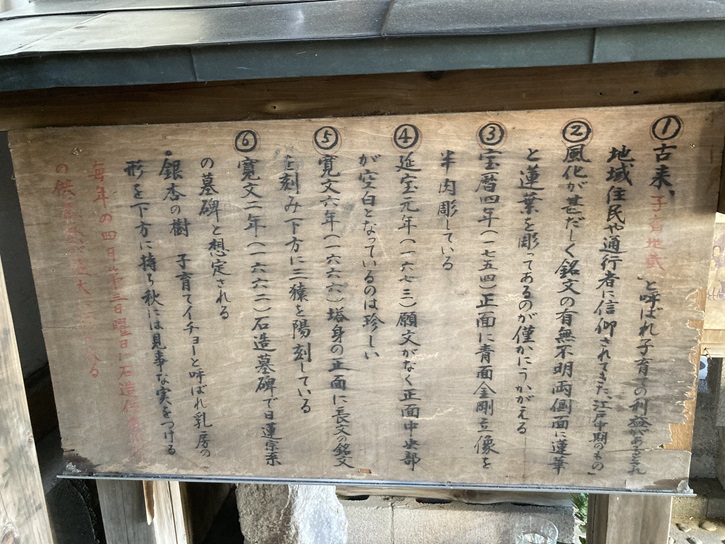 ①古来、子育地蔵と呼ばれ子育ての利益があるとされ
地域住民や通行者に信仰されてきた、江戸中期のもの
②風化が甚だしく銘文の有無不明両側面に蓮華
と蓮葉を彫ってあるのが僅かにうかがえる
③宝暦四年(一七五四)正面に青面金剛立像を
半肉彫している
④延宝元年(一六七三)願文がなく正面中央部
が空白となっているのは珍しい
⑤寛文六年(一六六六)塔身の正面に長文の銘文
を刻み下方に三猿を陽刻している
⑥寛文二年(一六六二)石造墓碑で日蓮宗系
の墓碑と想定される
•銀杏の樹 子育てイチョーと呼ばれ乳房の
形を下方に持ち秋には見事な実をつける
毎年の四月第三日曜日に石造
の供養